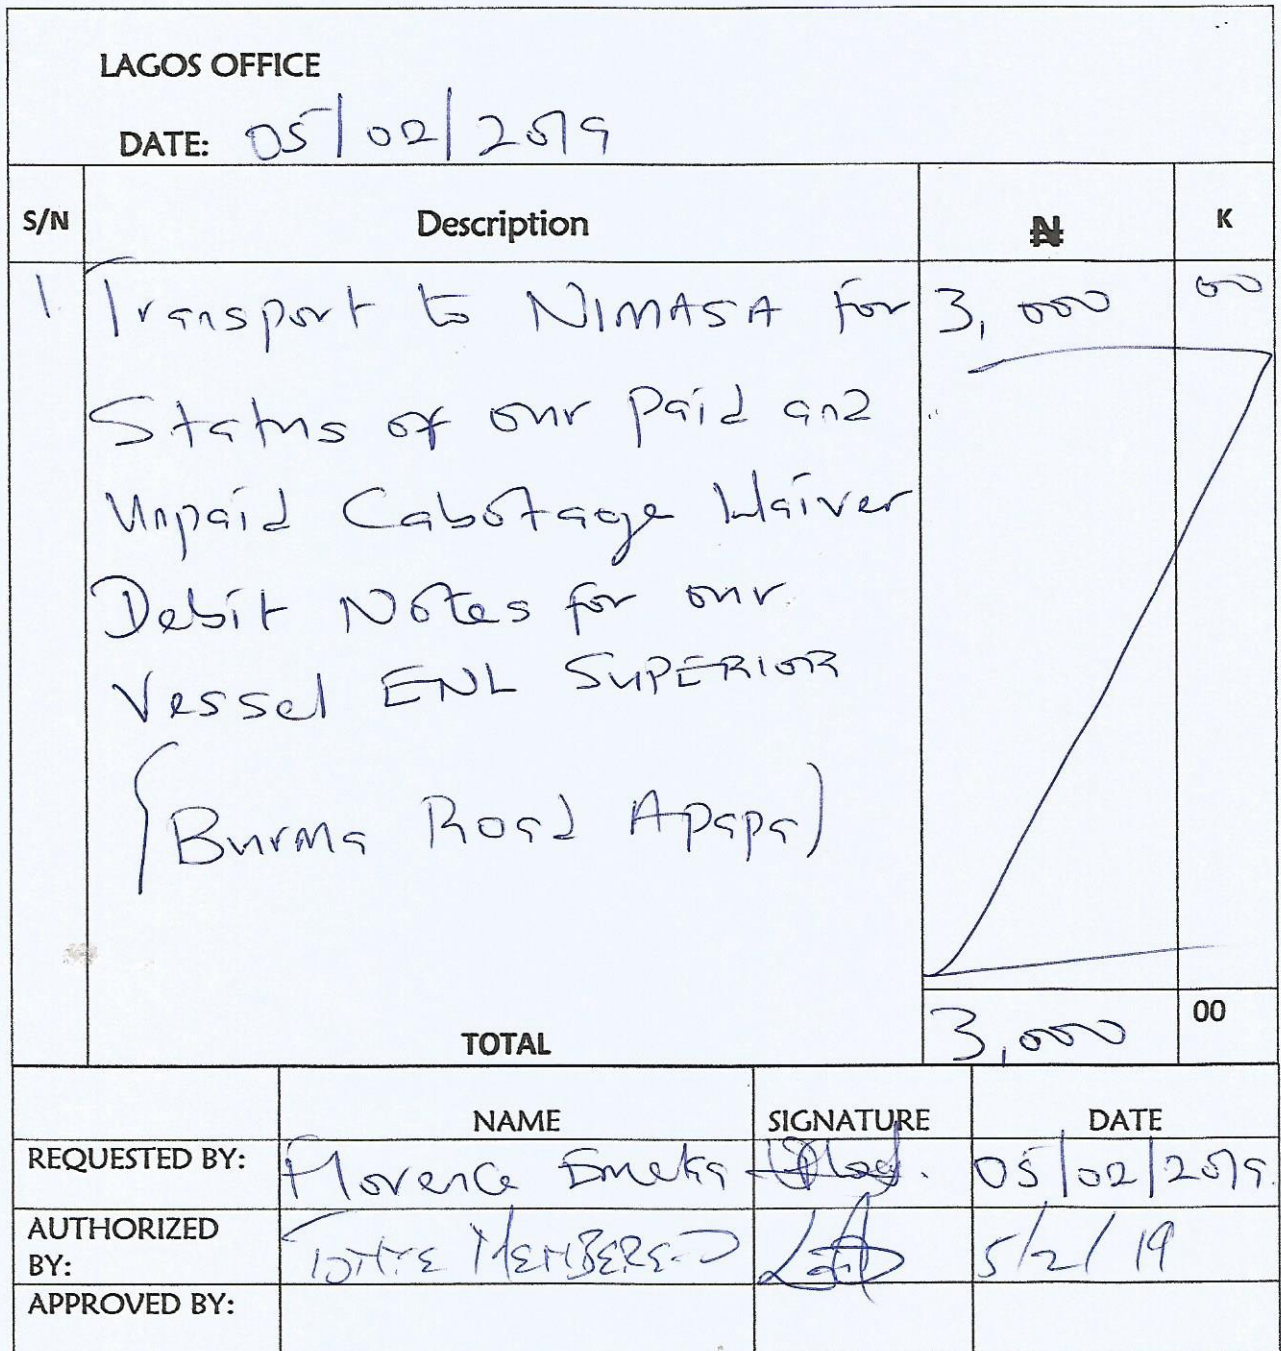 LAGOS OFFICE
DATE: 05/02/2019
S/N Description ₦ K
1. Transport to NIMASA for 3,000 00
Status of our paid and
Unpaid Cabotage Waiver
Debit Notes for our
Vessel ENL SUPERIOR
(Burma Road Apapa)
TOTAL 3,000 00
NAME SIGNATURE DATE
REQUESTED BY: Florence Emeka 05/02/2019
AUTHORIZED
BY: 5/2/19
APPROVED BY: